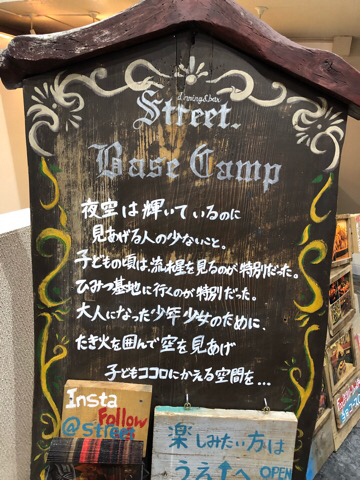 dining&bar
Street.
Base Camp
夜空は輝いているのに
見あげる人の少ないこと。
子どもの頃は、流れ星を見るのが特別だった。
ひみつ基地に行くのが特別だった。
大人になった少年少女のために、
たき火を囲んで空を見あげ
子どもココロにかえる空間を...
Insta
Follow
@street
楽しみたい方は
うえ↑へ OPEN